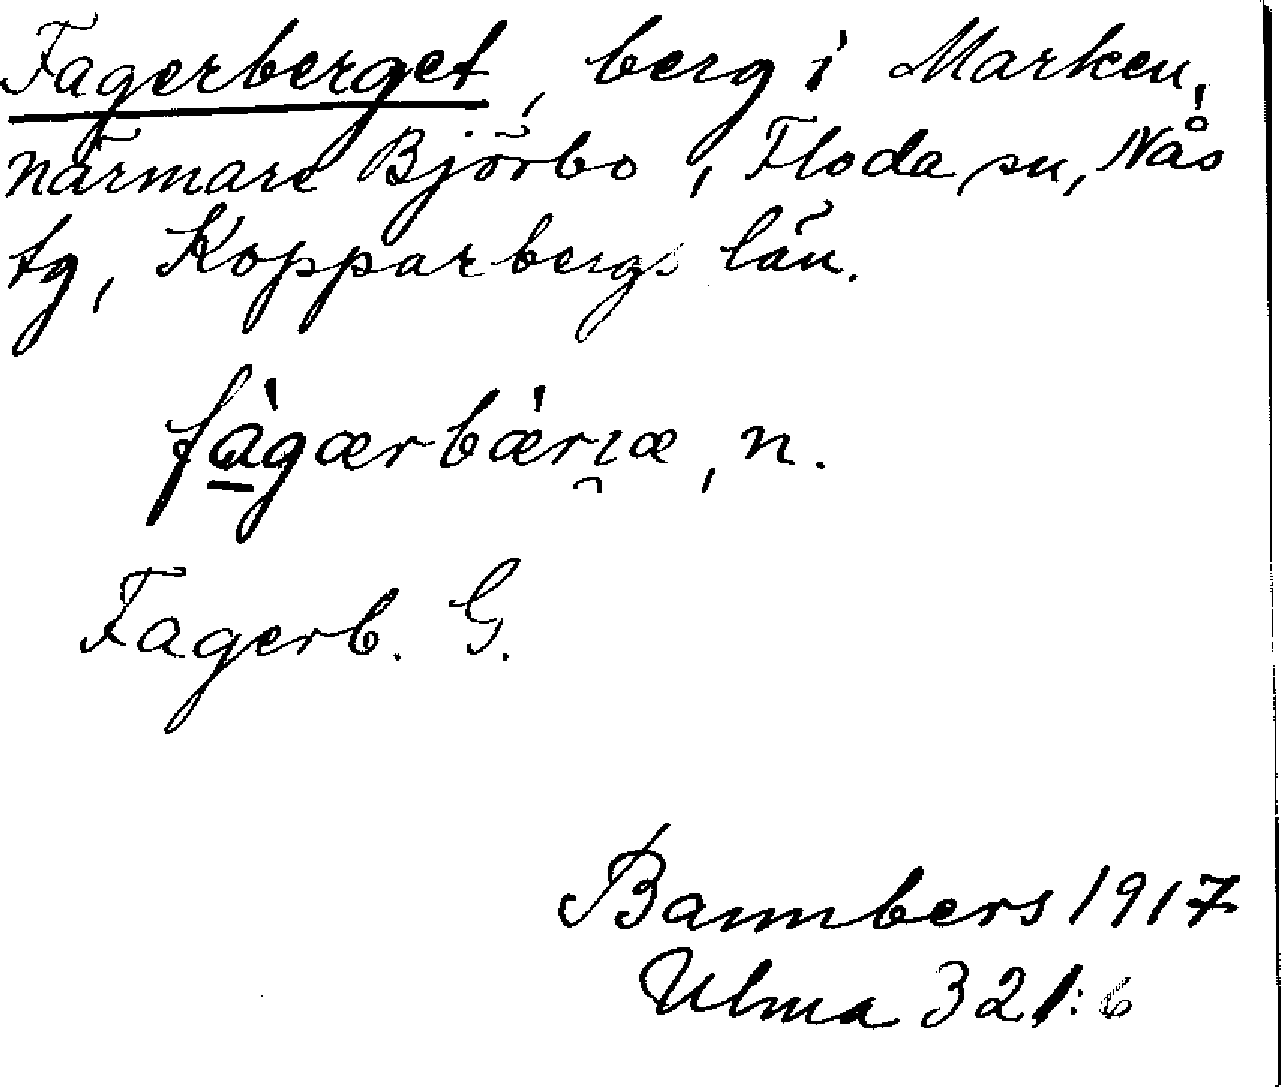 Fagerberget, berg i Marken,
närmare Björbo, Floda sn, Nås
tg, Kopparbergs län.
fàgærbæ̀rɪ̯æ, n.
Fagerb. G.
Bannbers 1917
Ulma 321:6